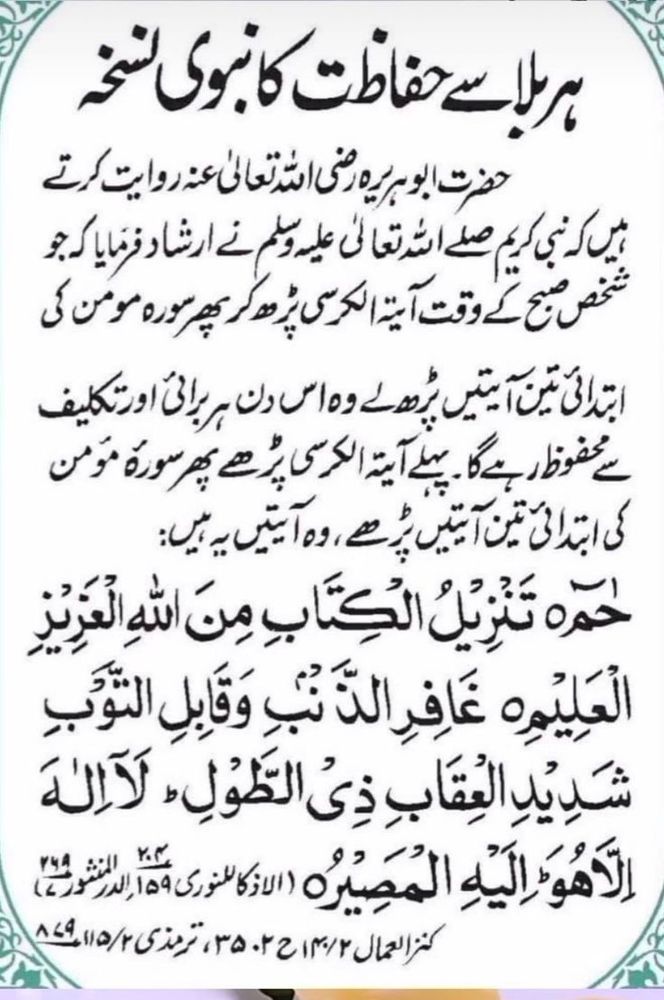 ہر بلا سے حفاظت کا نبوی نسخہ
حضرت ابوہریرہ رضی اللہ تعالیٰ عنہ روایت کرتے
ہیں کہ نبی کریم صلے اللہ تعالیٰ علیہ وسلم نے ارشاد فرمایا کہ جو
شخص صبح کے وقت آیۃ الکرسی پڑھ کر پھر سورہ مومن کی
ابتدائی تین آیتیں پڑھ لے وہ اس دن ہر برائی اور تکلیف
سے محفوظ رہے گا۔ پہلے آیۃ الکرسی پڑھے پھر سورۂ مؤمن
کی ابتدائی تین آیتیں پڑھے، وہ آیتیں یہ ہیں:
حٰمٓ ۝ تَنْزِیْلُ الْکِتَابِ مِنَ اللّٰہِ الْعَزِیْزِ
الْعَلِیْمِ ۝ غَافِرِ الذَّنْۢبِ وَقَابِلِ التَّوْبِ
شَدِیْدِ الْعِقَابِ ذِی الطَّوْلِ ؕ لَآ اِلٰہَ
اِلَّا ھُوَ ؕ اِلَیْہِ الْمَصِیْرُ ۝ (الاذکار للنوری ۱۵۹/۲۰۴، الدر المنثور ۷/۲۶۹)
کنز العمال ۱۴۰/۲ ح ۳۵۰۲، ترمذی ۱۱۵/۲ ۸۷۹